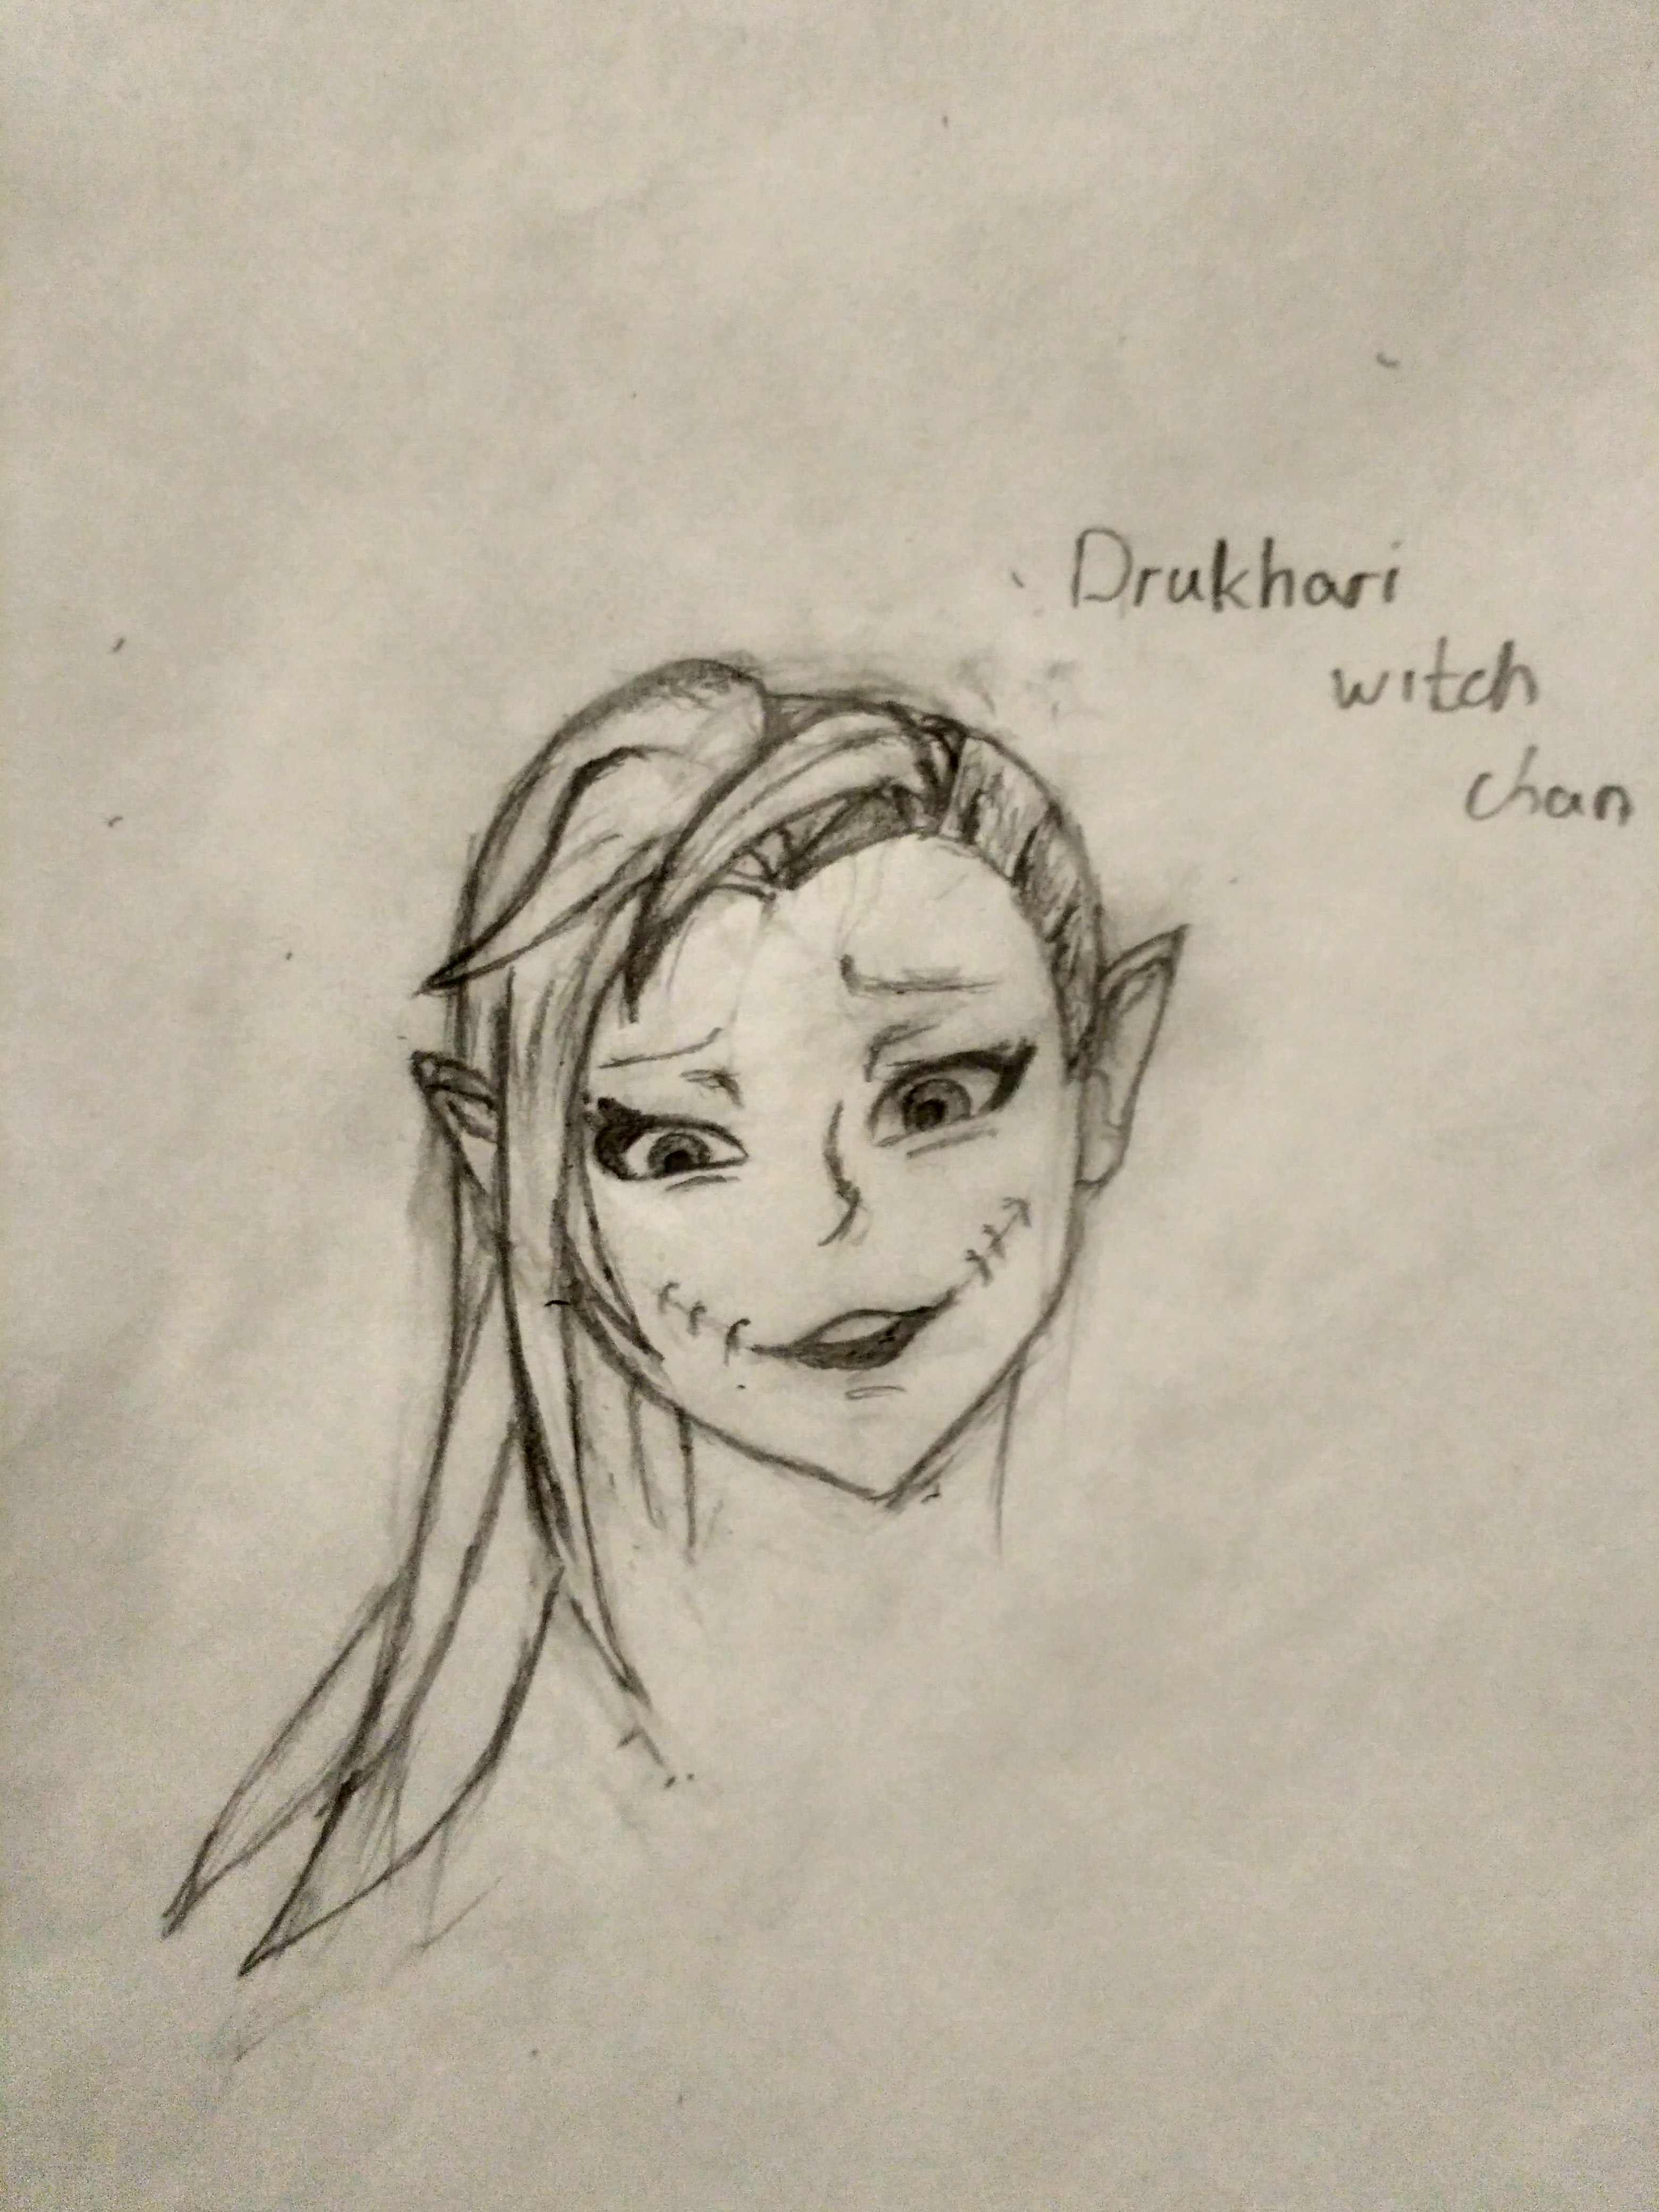 Drukhari
witch
chan